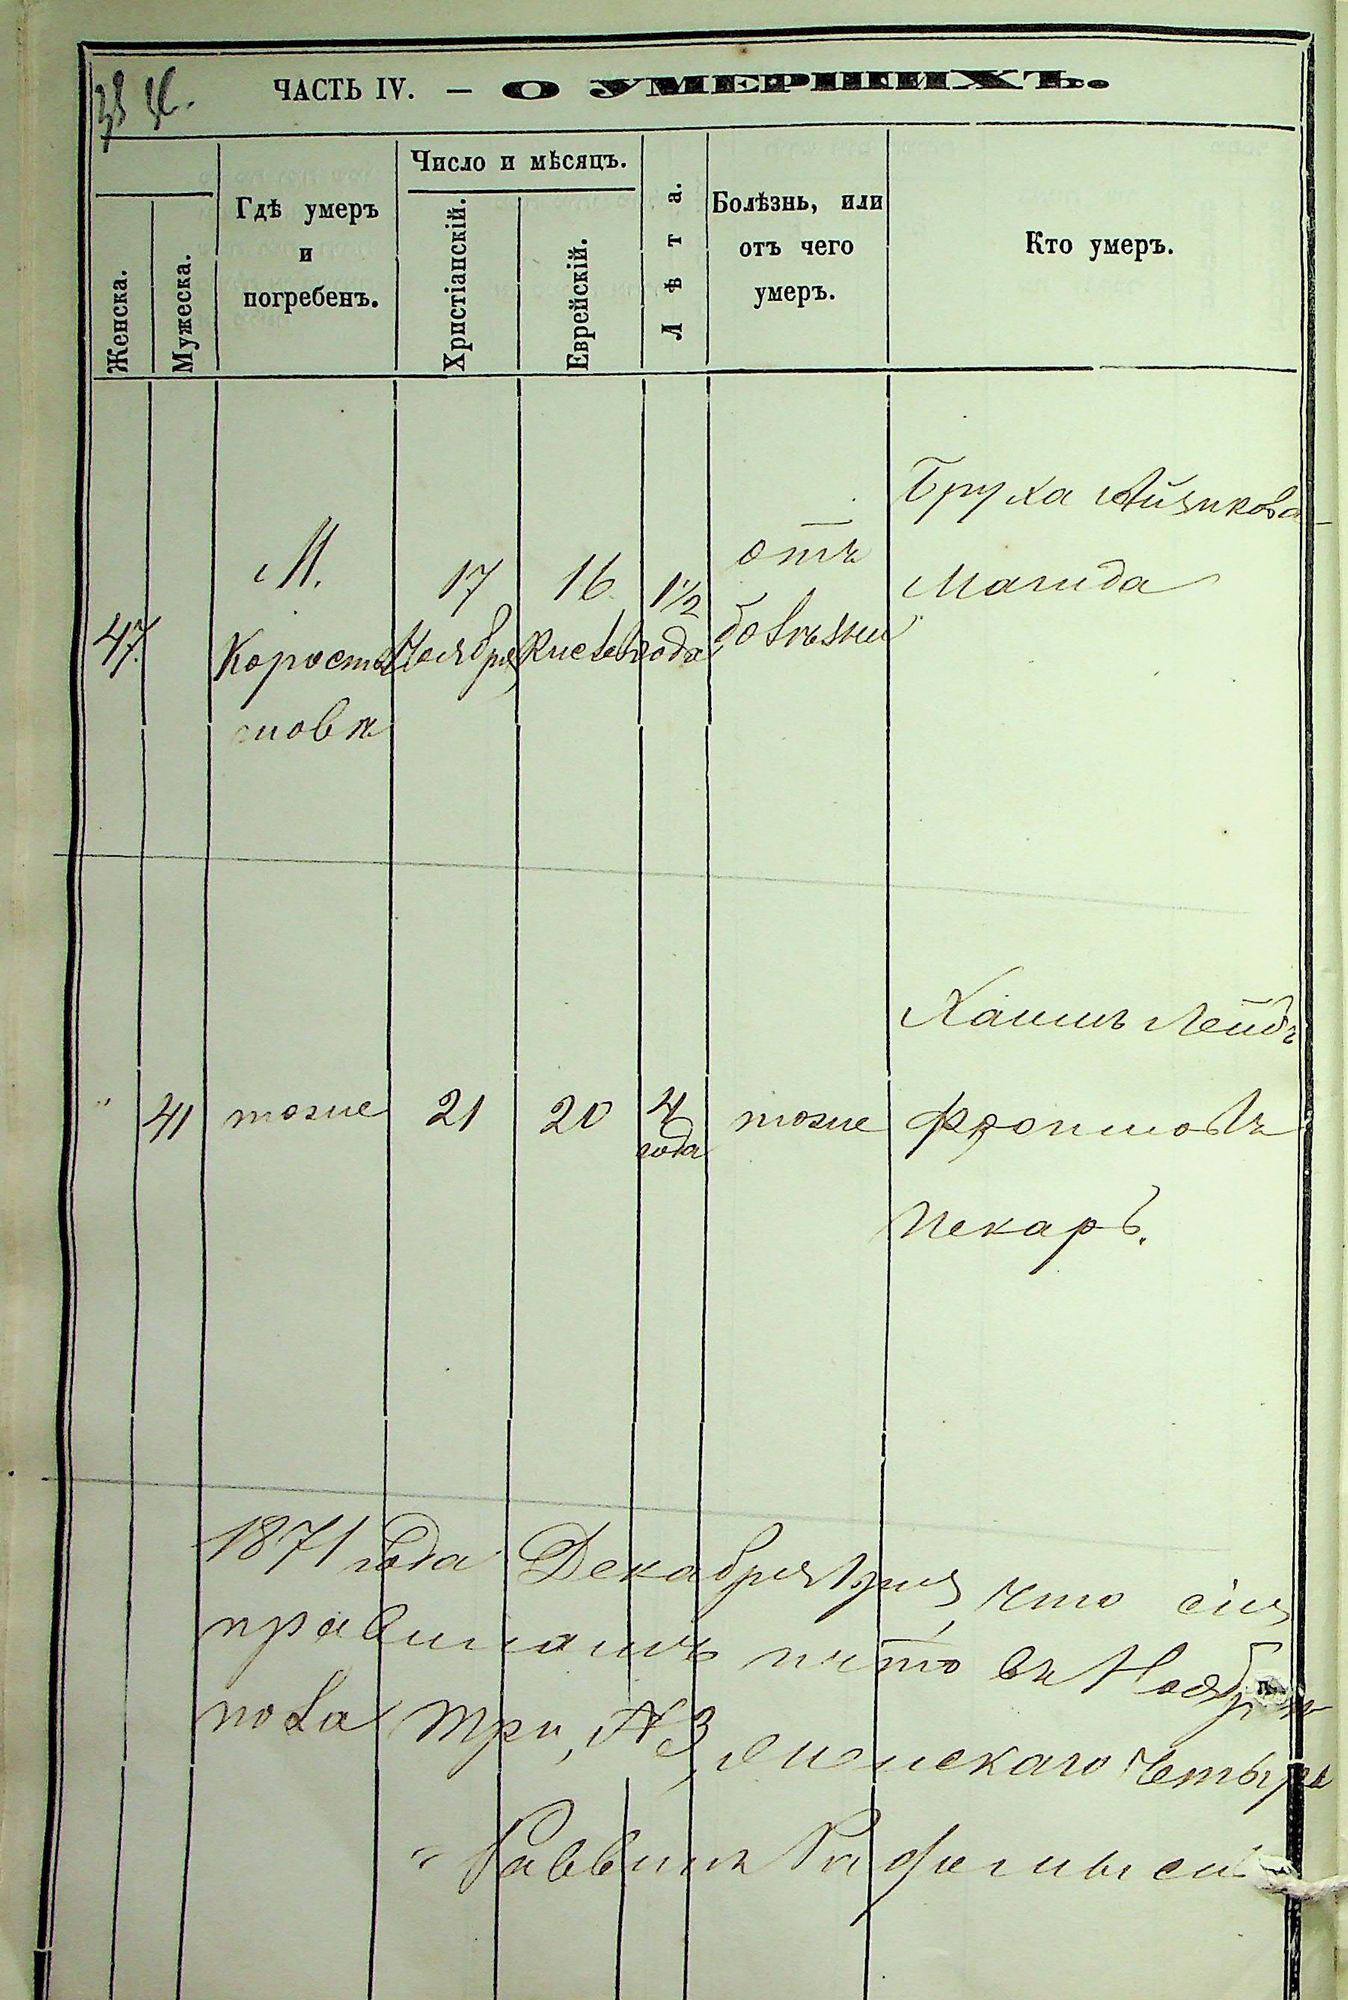 ЧАСТЬ IV. — О УМЕРШИХЪ.
Женска.
Мужеска.
Гдѣ умеръ
и
погребенъ.
Число и мѣсяцъ.
Христіанскій.
Еврейскій.
Лѣта.
Болѣзнь, или
отъ чего
умеръ.
Кто умеръ.
47.
М.
Корости
шовк
17
Ноября
16
Кислев
1 1/2
года
отъ
болѣзни
Бруха Айзикова
Магида
" 41 тоже 21 20 4
года
тоже
Хаимъ Лейбъ
Фроимовъ
Пекарь.
1871 года Декабря 1 дня, что сія
правиламъ и что въ Ноябрѣ
пола три, № 3, женскаго четыре
Раввинъ